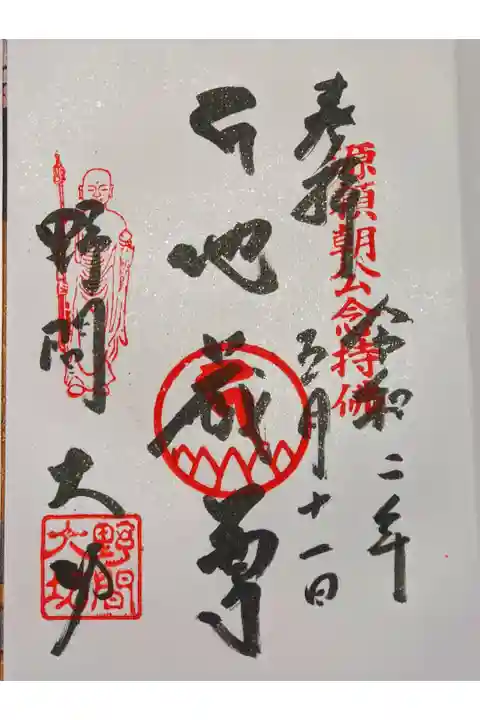 奉拝
源頼朝公念持佛
令和二年
五月十一日
地蔵尊
野間
大坊
野間
大坊